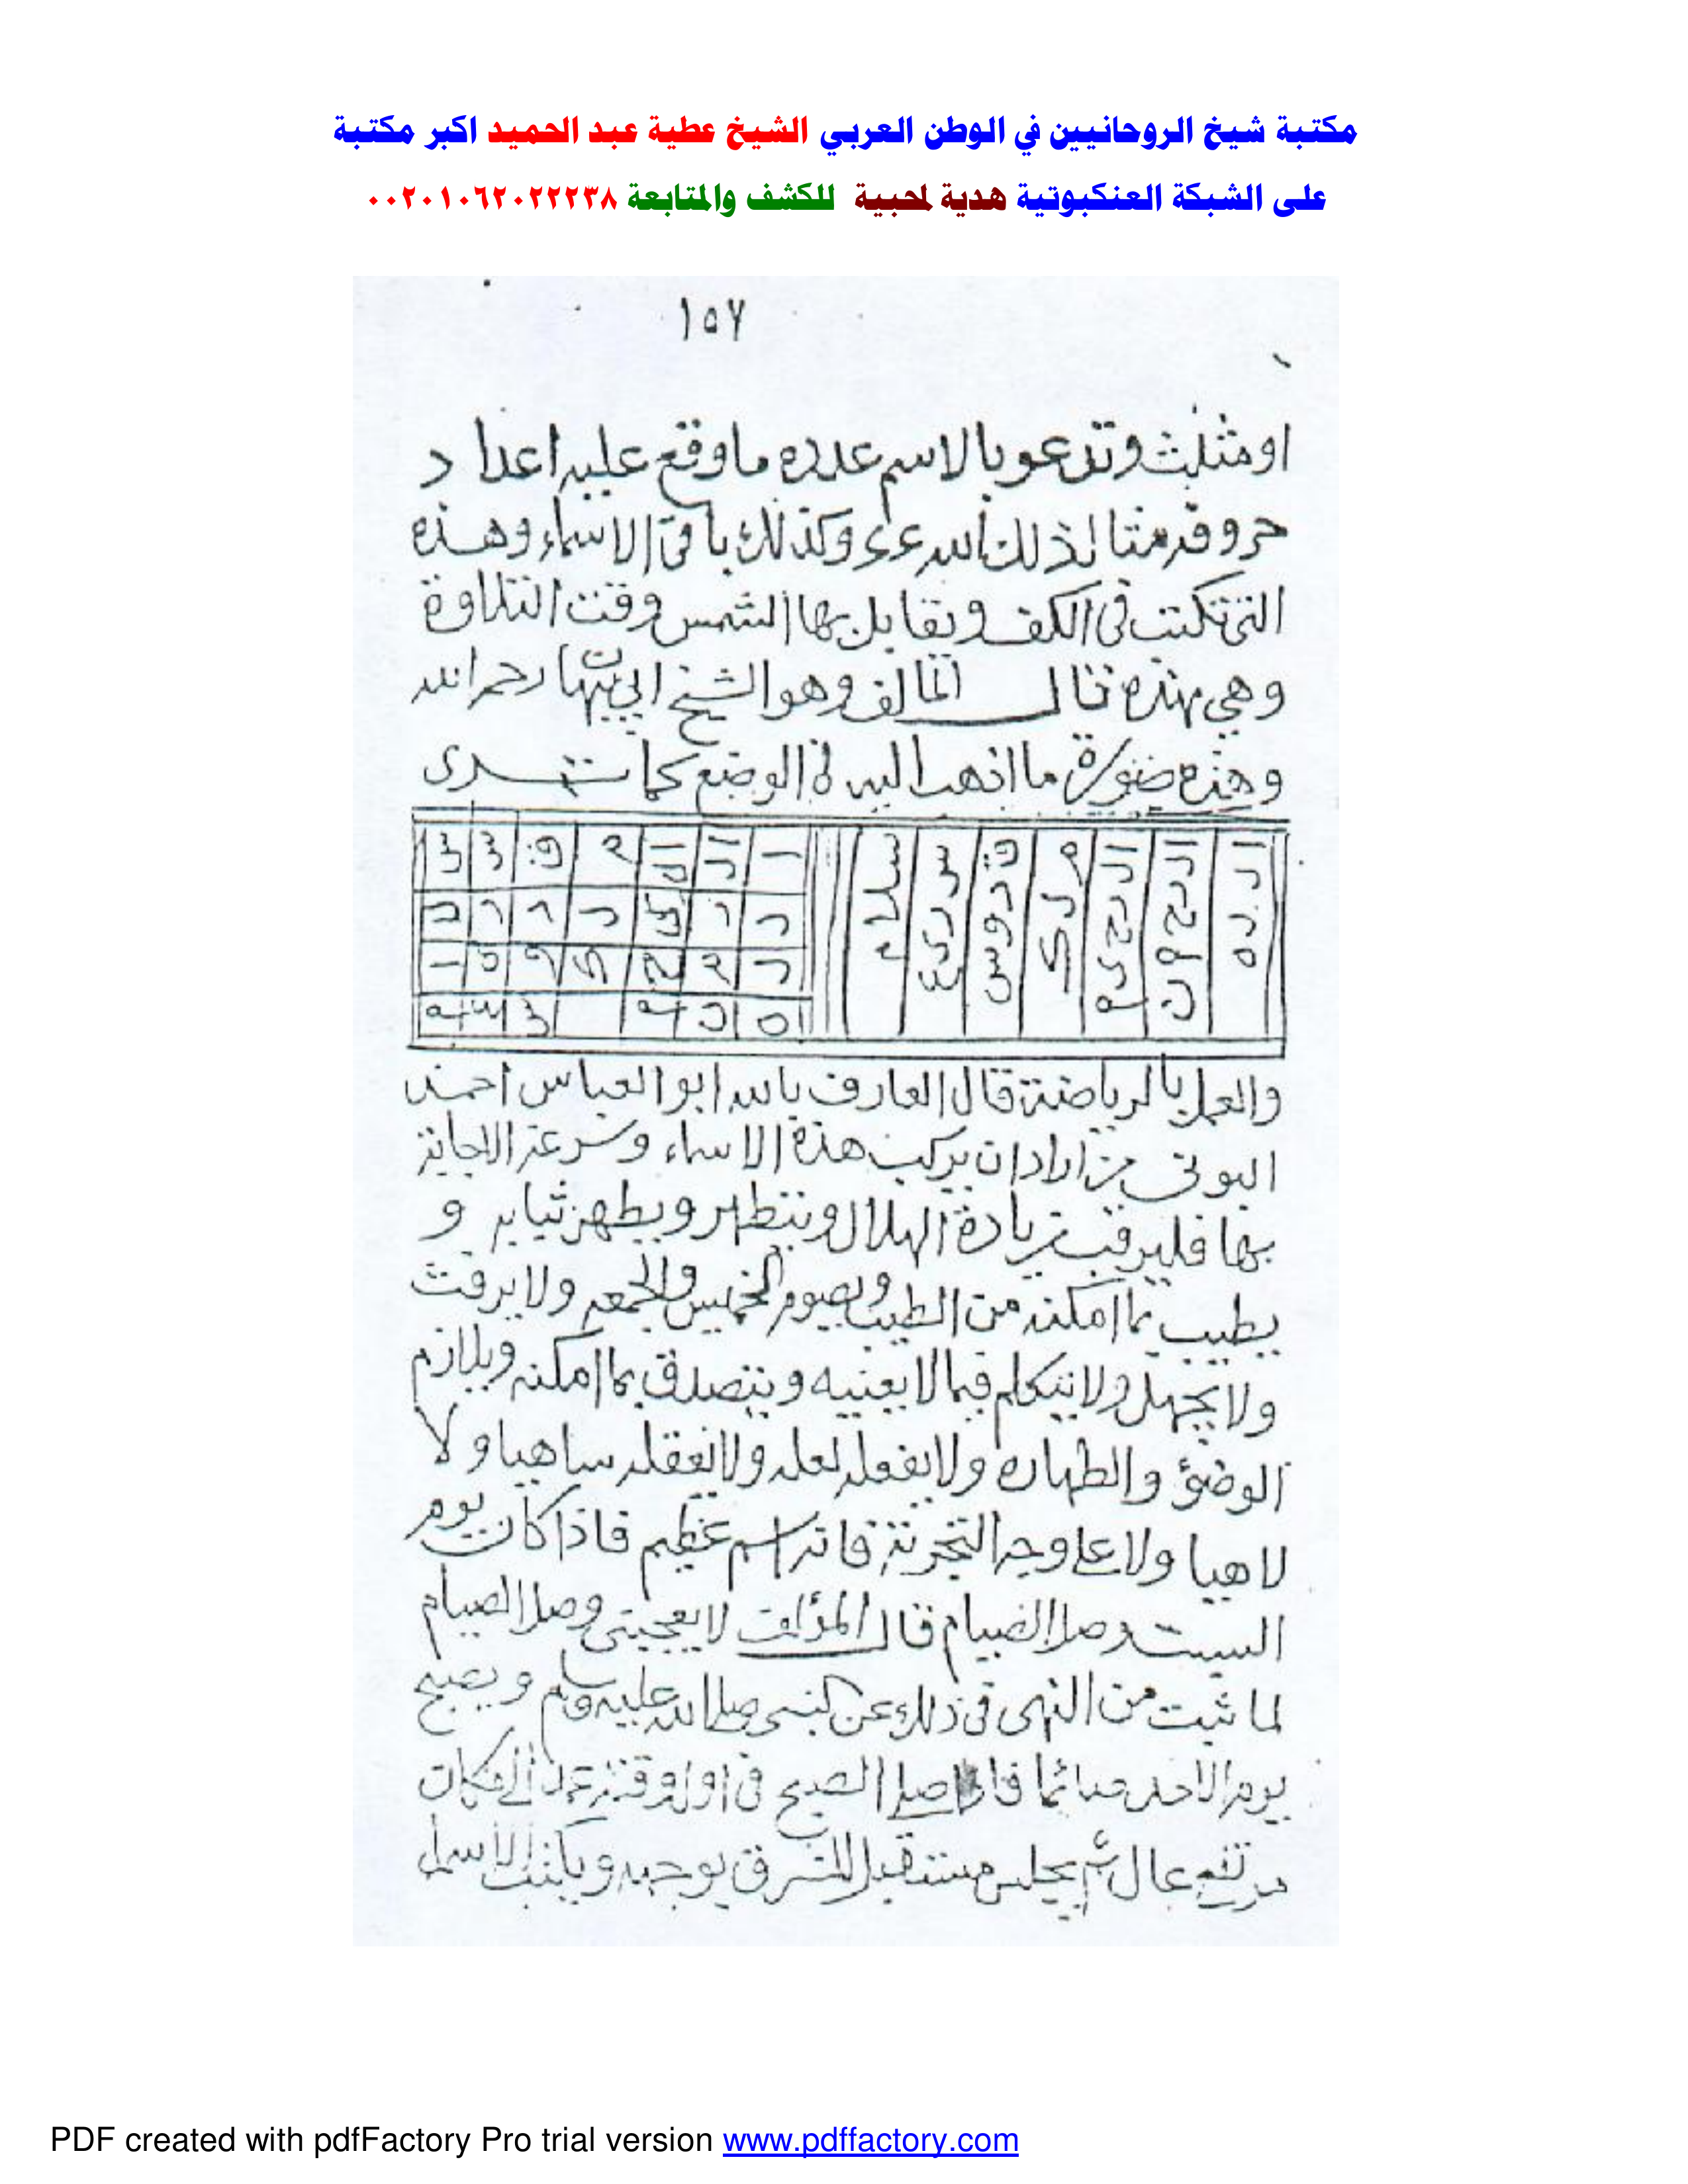 مكتبة شيخ الروحانيين في الوطن العربي الشيخ عطية عبد الحميد اكبر مكتبة
على الشبكة العنكبوتية هدية لمحبية للكشف والمتابعة ٠٠٢٠١٠٦٢٠٢٢٢٣٨
١٥٧
او مثلث وتدعو بالاسم عدده ما وقع عليه اعداد
حروفه مثالذلك الله ع٤٤ وكذلك باقى الاسماء وهذه
التى تكتب فى الكف وتقابل بها الشمس وقت التلاوة
وهي بهذه قال المالف وهو الشيخ ابي رحمه الله
وهذه صورة ما اذهب اليه فى الوضع كما ترى
ا ل ل ه
ا ل ر ح م ن
ا ل ر ح ى م
م ل ك
ق د و س
س ر ى ع
س ل ا م
والعمل بالرياضة قال العارف بالله ابو العباس احمد
البونى من اراد ان يركب هذه الاسماء وسرعة الاجابة
بها فليرقب زيادة الهلال ويتطهر ويطهر ثيابه و
يطيب بما امكنه من الطيب ويصوم الخميس والجمعه ولا يرفث
ولا يجهل ولا يتكلم فيما لا يعنيه ويتصدق بما امكنه ويلازم
الوضؤ والطهاره ولا يفعله لعله ولا ساهيا ولا
لاهيا ولا على وجه التجربة فانه اسم عظيم فاذا كان يوم
السبت وصل الصيام قال المؤلف لا يعجبنى وصل الصيام
لما ثبت من النهى فى ذلك عن النبى صلى الله عليه وسلم ويصبح
يوم الاحد صائما فاذا صلى الصبح فى اول وقته عمد الى مكان
مرتفع عال ثم يجلس مستقبل المشرق بوجهه ويكتب الاسماء
PDF created with pdfFactory Pro trial version www.pdffactory.com